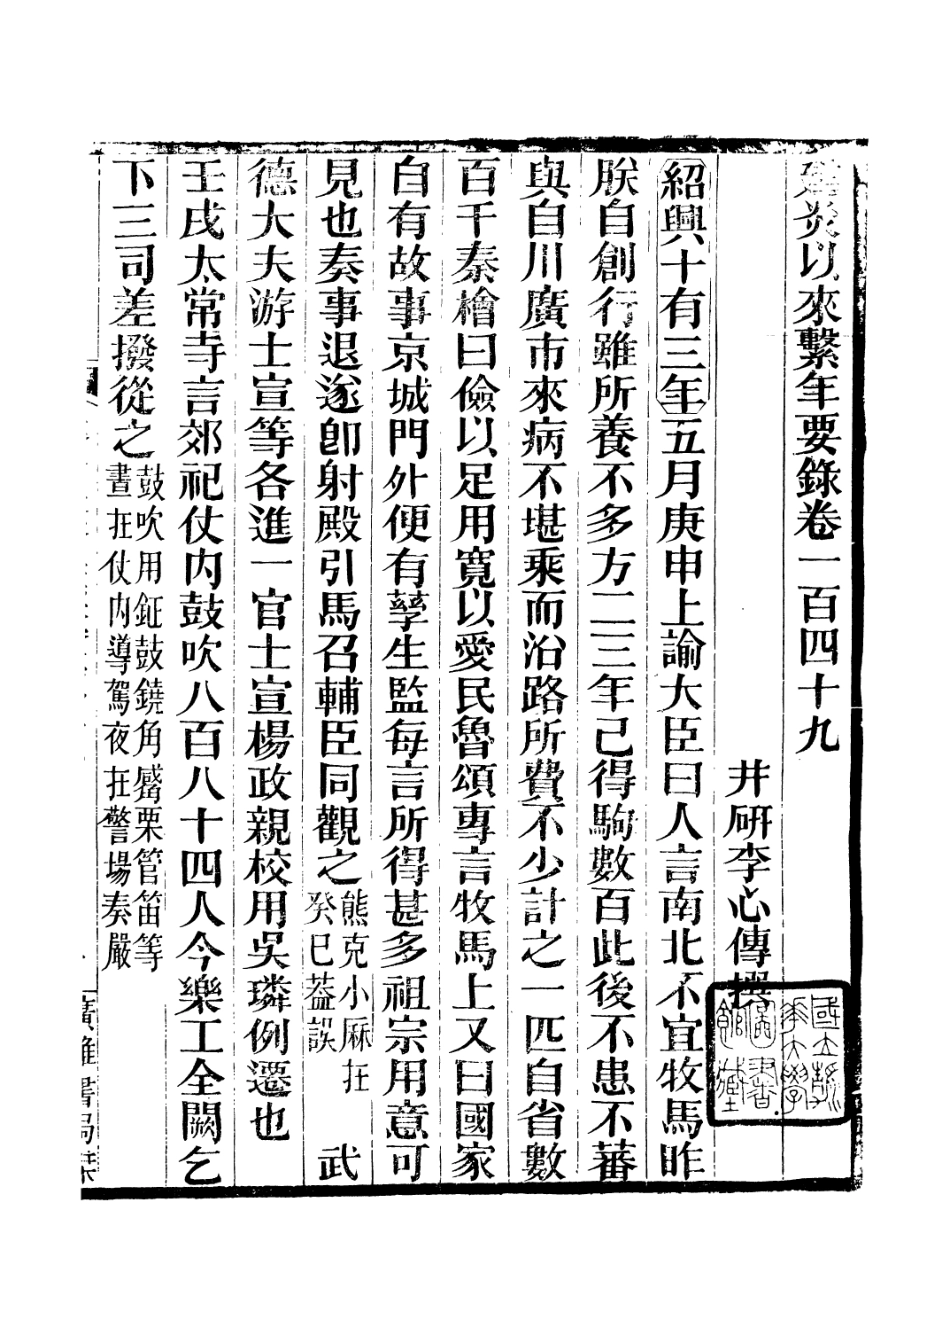 建炎以來繫年要錄卷一百四十九
井研李心傳撰
紹興十有三年五月庚申上諭大臣曰人言南北不宜牧馬昨
朕自創行雖所養不多方二三年已得駒數百此後不患不蕃
與自川廣市來病不堪乘而沿路所費不少計之一匹自省數
百千秦檜曰儉以足用寬以愛民魯頌專言牧馬上又曰國家
自有故事京城門外便有孳生監每言所得甚多祖宗用意可
見也奏事退遂卽射殿引馬召輔臣同觀之熊克小厤在癸巳葢誤 武
德大夫游士宣等各進一官士宣楊政親校用吳璘例遷也
壬戌太常寺言郊祀仗内鼓吹八百八十四人今樂工全闕乞
下三司差撥從之鼓吹用鉦鼓鐃角觱栗管笛等晝在仗内導駕夜在警場奏嚴
廣雅書局栞
國立清華大學圖書館藏